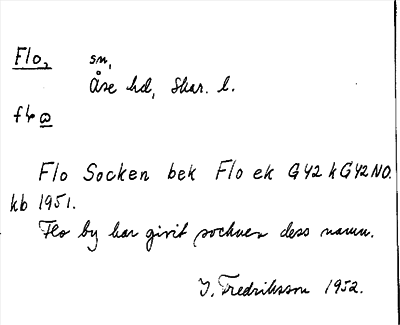 Flo, sn,
Åse hd, Skar. l.
Flo Socken bek Flo ek G42 k G42 NO.
kb 1951.
Flo by har givit socknen dess namn.
I. Fredriksson 1952.